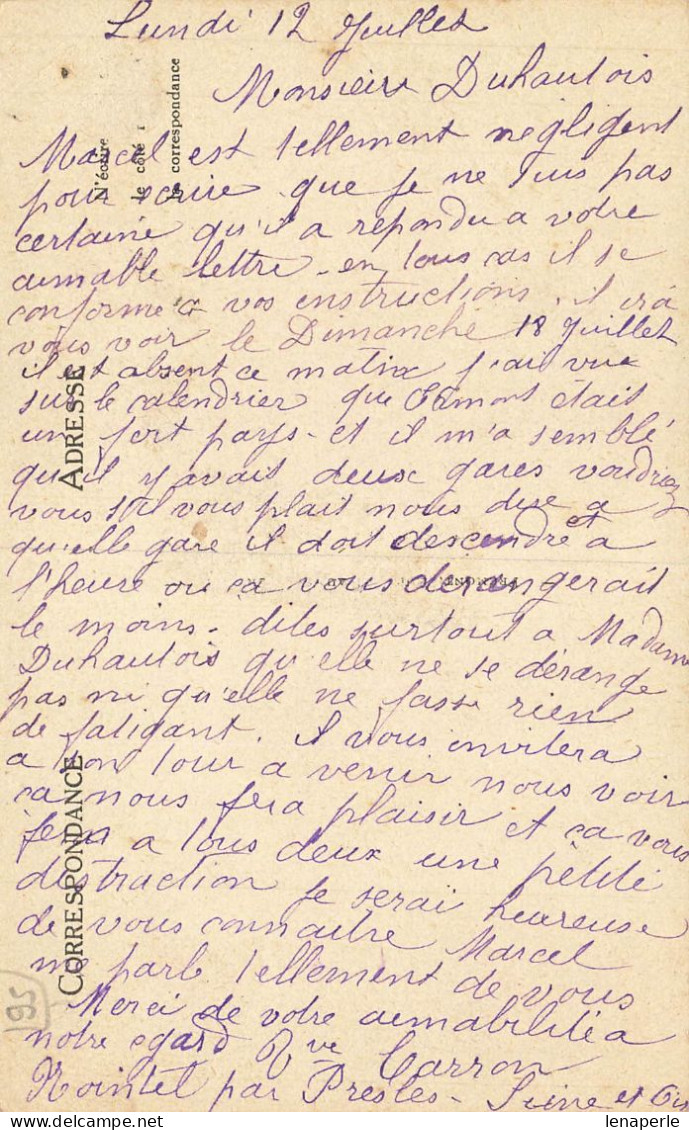 Lundi 12 Juillet
Monsieur Duhautois
Marcel est tellement negligent
pour ecrire que je ne suis pas
certaine qu'il a repondu a votre
aimable lettre - en tous cas il se
conforme a vos instructions. il ira
vous voir le Dimanche 18 Juillet
il est absent ce matin j'ai vu
sur le calendrier que était
un fort pays - et il m'a semblé
qu'il y avait deux gares voudriez
vous sil vous plait nous dire a
qu'elle gare il doit descendre et a
l'heure ou ca vous derangerait
le moins - dites surtout a Madame
Duhautois qu'elle ne se dérange
pas ni qu'elle ne fasse rien
de fatigant. il vous invitera
a son tour a venir nous voir
ca nous fera plaisir et ca vous
fera a tous deux une petite
distraction je serai heureuse
de vous connaitre Marcel
me parle tellement de vous
Merci de votre amabilité a
notre egard Vve Carron
Nointel par Presles - Seine et Oise
N'écrire
le côté
la correspondance
ADRESSE
CORRESPONDANCE
195
delcampe.net
lenaperle